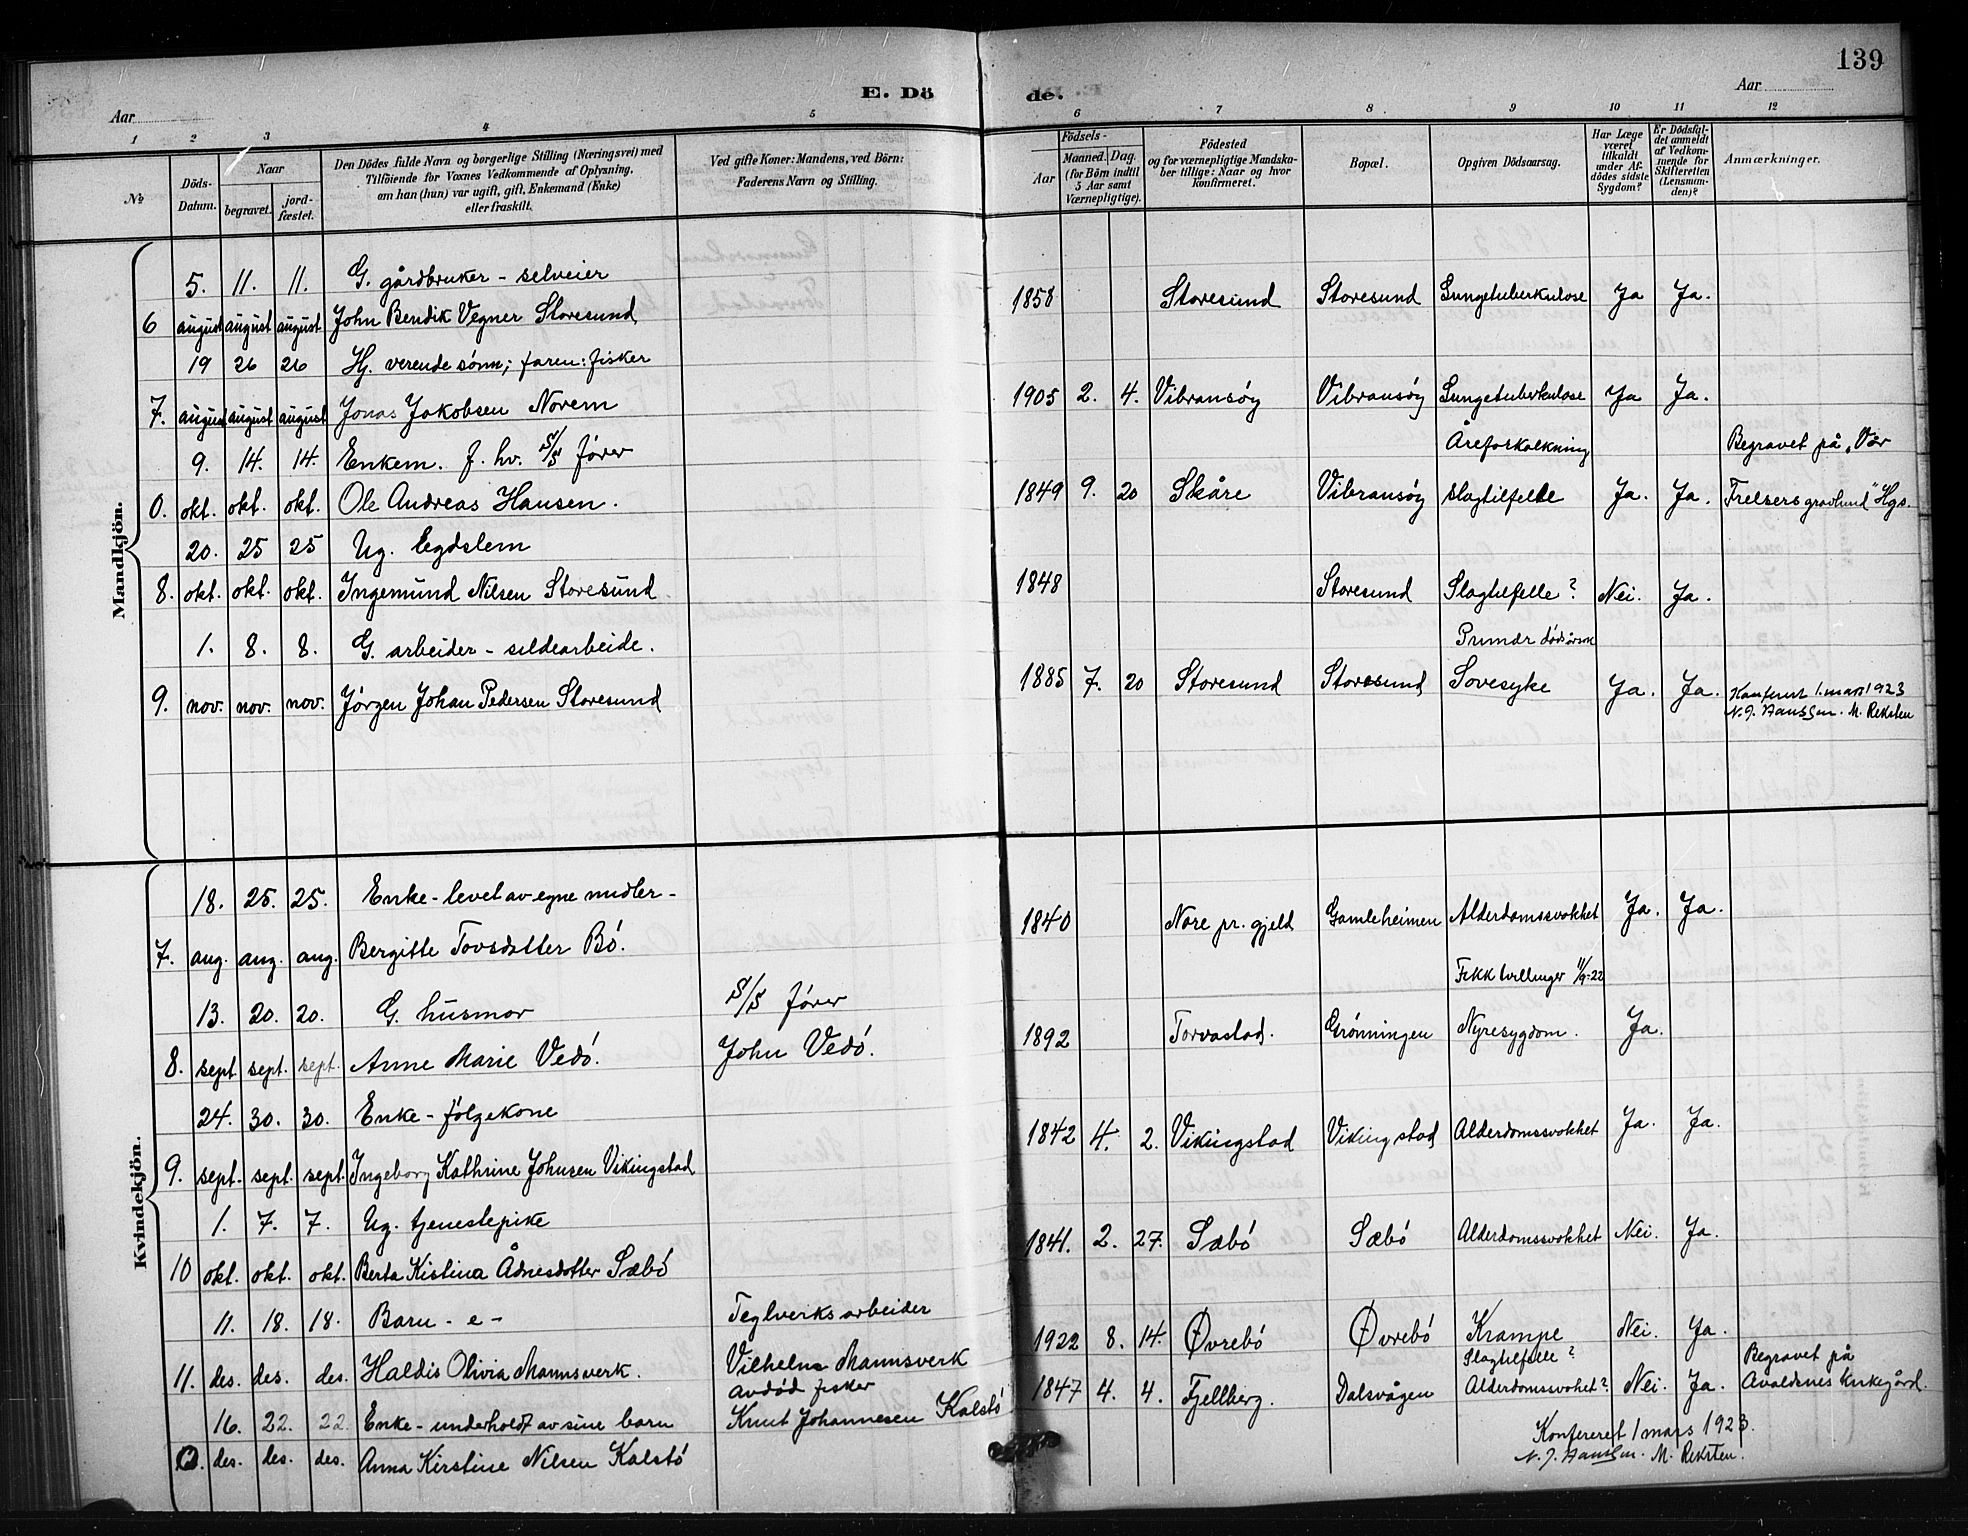 139
E. Dö de.
Aar Aar
1 2 3 4 5 6 7 8 9 10 11 12
№
Döds-Datum.
Naar
begravet.
jord-fæstet.
Den Dödes fulde Navn og borgerlige Stilling (Næringsvei) med
Tilföiende for Voxnes Vedkommende af Oplysning,
om han (hun) var ugift, gift, Enkemand (Enke)
eller fraskilt.
Ved gifte Koner: Mandens, ved Börn:
Faderens Navn og Stilling.
Födsels-
Aar
Maaned. Dag.
(for Börn indtil
5 Aar samt
Værnepligtige).
Födested
og for værnepligtige Mandska-
ber tillige: Naar og hvor
konfirmeret.
Bopæl.
Opgiven Dödsaarsag.
Har Læge
været
tilkaldt
under Af-
dödes sidste
Sygdom?
Er Dödsfal-
det anmeldt
af Vedkom-
mende for
Skifteretten
(Lensman-
den)?
Anmærkninger.
Mandkjön.
5. 11. 11. G. gårdbruker - selveier
6 august august august John Bendik Vegner Storesund 1858 Storesund Storesund Lungetuberkulose Ja Ja.
19 26 26 Hj. verende sønn; faren: fisker
7. august august august Jonas Jakobsen Norem 1905 2. 4. Vibransøy Vibransøy Lungetuberkulose Ja Ja.
9. 14. 14. Enkem. f. hv. S/S fører Åreforkalkning Begravet på "Vår
0. okt. okt. okt. Ole Andreas Hansen. 1849 9. 20 Skåre Vibransøy slagtilfelle Ja. Ja. Frelsers gravlund" Hgs.
20. 25 25 Ug. legdslem
8. okt. okt. okt. Ingemund Nilsen Storesund 1848 Storesund Slagtilfelle? Nei. Ja.
1. 8. 8. G. arbeider - sildearbeide. Primær dødsårsak
9. nov. nov. nov. Jørgen Johan Pedersen Storesund 1885 7. 20 Storesund Storesund Sovesyke Ja. Ja. Konferert 1. mars 1923
N. J. Hanssen. M. Reksten
Kvindekjön.
18. 25. 25. Enke - levet av egne midler -
7. aug. aug. aug. Bergitte Tovsdatter Bö. 1840 Nore pr. gjeld Gamleheimen Alderdomssvakhet Ja. Ja.
13. 20. 20. G. husmor S/S fører Fikk tvillinger 11/9-22
8. sept. sept. sept. Anne Marie Vedö. John Vedö. 1892 Torvastad. Grönningen Nyresygdom. Ja.
24. 30. 30. Enke - följekone
9. sept. sept. sept. Ingeborg Kathrine Johnsen Vikingstad 1842 4. 2. Vikingstad Vikingstad Alderdomssvakhet Ja. Ja.
1. 7. 7. Ug. tjenestepike
10 okt. okt. okt. Berta Kistina Ådnesdotter Sæbö 1841. 2. 27. Sæbö Sæbö Alderdomssvakhet Nei. Ja.
11. 18. 18. Barn - e - Teglverksarbeider
11. des. des. des. Haldis Olivia Mannsverk. Vilhelm Mannsverk 1922 8. 14. Øvrebö Øvrebö Krampe Nei. Ja.
avdöd fisker Slagtilfelle? Begravet på
16. 22. 22. Enke - underholdt av sine barn Knut Johannesen Kalstö 1847 4. 4. Fjellberg. Dalsvågen Alderdomssvakhet? Nei. Ja. Avaldsnes kirkegård.
des. des. des. Anna Kirstine Nilsen Kalstö
Konfereret 1 mars 1923.
N. J. Hanssen. M. Reksten.